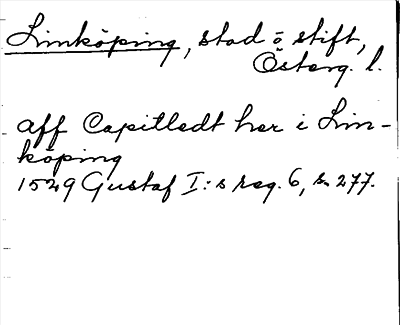 Linköping, stad o stift,
Österg. l.
aff Capitledt her i Lin-
köping
1529 Gustaf I:s reg. 6, s. 277.